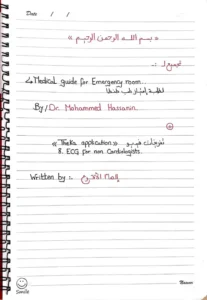 Date / /
« بسم الله الرحمن الرحيم »
تجميع لـ :-
Medical guide for Emergency room.
By/ Dr. Mohammed Hassanin.
+
« Theka application »
8. ECG for non Cardiologists.
Written by :-
Smile